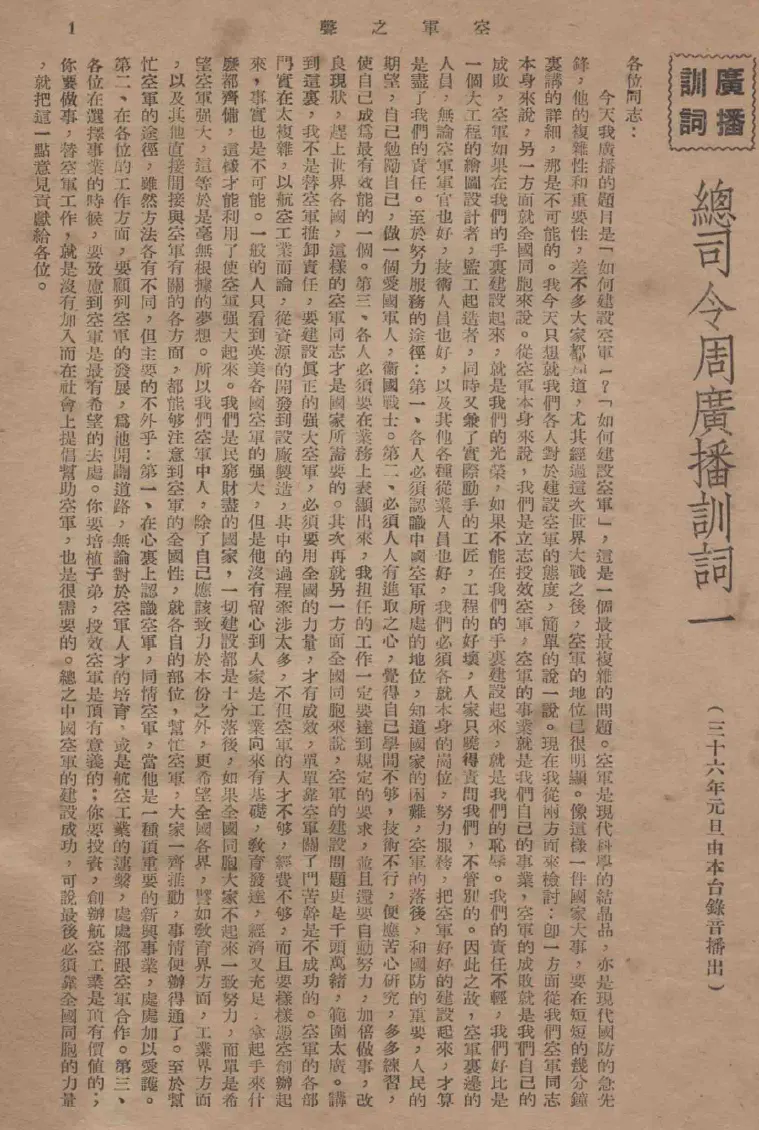 空軍之聲
1
廣播
訓詞
總司令周廣播訓詞一
（三十六年元旦由本台錄音播出）
各位同志：
今天我廣播的題目是「如何建設空軍」？「如何建設空軍」，這是一個最最複雜的問題。空軍是現代科學的結晶品，亦是現代國防的急先
鋒，他的複雜性和重要性，差不多大家都知道，尤其經過這次世界大戰之後，空軍的地位已很明顯。像這樣一件國家大事，要在短短的幾分鐘
裏講的詳細，那是不可能的。我今天只想就我們各人對於建設空軍的態度，簡單的說一說。現在我從兩方面來檢討：卽一方面從我們空軍同志
本身來說，另一方面就全國同胞來說。從空軍本身來說，我們是立志投效空軍，空軍的事業就是我們自己的事業，空軍的成敗就是我們自己的
成敗，空軍如果在我們的手裏建設起來，就是我們的光榮，如果不能在我們的手裏建設起來，就是我們的恥辱。我們的責任不輕，我們好比是
一個大工程的繪圖設計者，監工起造者，同時又兼了實際動手的工匠，工程的好壞，人家只曉得責問我們，不管別的。因此之故，空軍裏邊的
人員，無論空軍軍官也好，技術人員也好，以及其他各種從業人員也好，我們必須各就本身的崗位，努力服務，把空軍好好的建設起來，才算
是盡了我們的責任。至於努力服務的途徑：第一、各人必須認識中國空軍所處的地位，知道國家的困難，空軍的落後，和國防的重要，人民的
期望，自己勉勵自己，做一個愛國軍人，衞國戰士。第二、必須人人有進取之心，覺得自己學問不够，技術不行，便應苦心研究，多多練習，
使自己成爲最有效能的一個。第三、各人必須要在業務上表顯出來，我担任的工作一定要達到規定的要求，並且還要自動努力，加倍做事，改
良現狀，趕上世界各國，這樣的空軍同志才是國家所需要的。其次再就另一方面全國同胞來說，空軍的建設問題更是千頭萬緒，範圍太廣。講
到這裏，我不是替空軍推卸責任，要建設眞正的强大空軍，必須要用全國的力量，才有成效，單單靠空軍關了門苦幹是不成功的。空軍的各部
門實在太複雜，以航空工業而論，從資源的開發到設廠製造，其中的過程牽涉太多，不但空軍的人才不够，經費不够，而且要樣樣憑空創辦起
來，事實也是不可能。一般的人只看到英美各國空軍的强大，但是他沒有留心到人家是工業向來有基礎，敎育發達，經濟又充足，拿起手來什
麽都齊備，這樣才能利用了使空軍强大起來。我們是民窮財盡的國家，一切建設都是十分落後，如果全國同胞大家不起來一致努力，而單是希
望空軍强大，這等於是毫無根據的夢想。所以我們空軍中人，除了自己應該致力於本份之外，更希望全國各界，譬如敎育界方面，工業界方面
，以及其他直接間接與空軍有關的各方面，都能够注意到空軍的全國性，就各自的部位，幫忙空軍，大家一齊推動，事情便辦得通了。至於幫
忙空軍的途徑，雖然方法各有不同，但主要的不外乎：第一、在心裏上認識空軍，同情空軍，當他是一種頂重要的新興事業，處處加以愛護。
第二、在各位的工作方面，要顧到空軍的發展，爲他開闢道路，無論對於空軍人才的培育，或是航空工業的連繫，處處都跟空軍合作。第三、
各位在選擇事業的時候，要攷慮到空軍是最有希望的去處。你要培植子弟，投效空軍是頂有意義的；你要投資，創辦航空工業是頂有價値的；
你要做事，替空軍工作，就是沒有加入而在社會上提倡幫助空軍，也是很需要的。總之中國空軍的建設成功，可說最後必須靠全國同胞的力量
，就把這一點意見貢獻給各位。